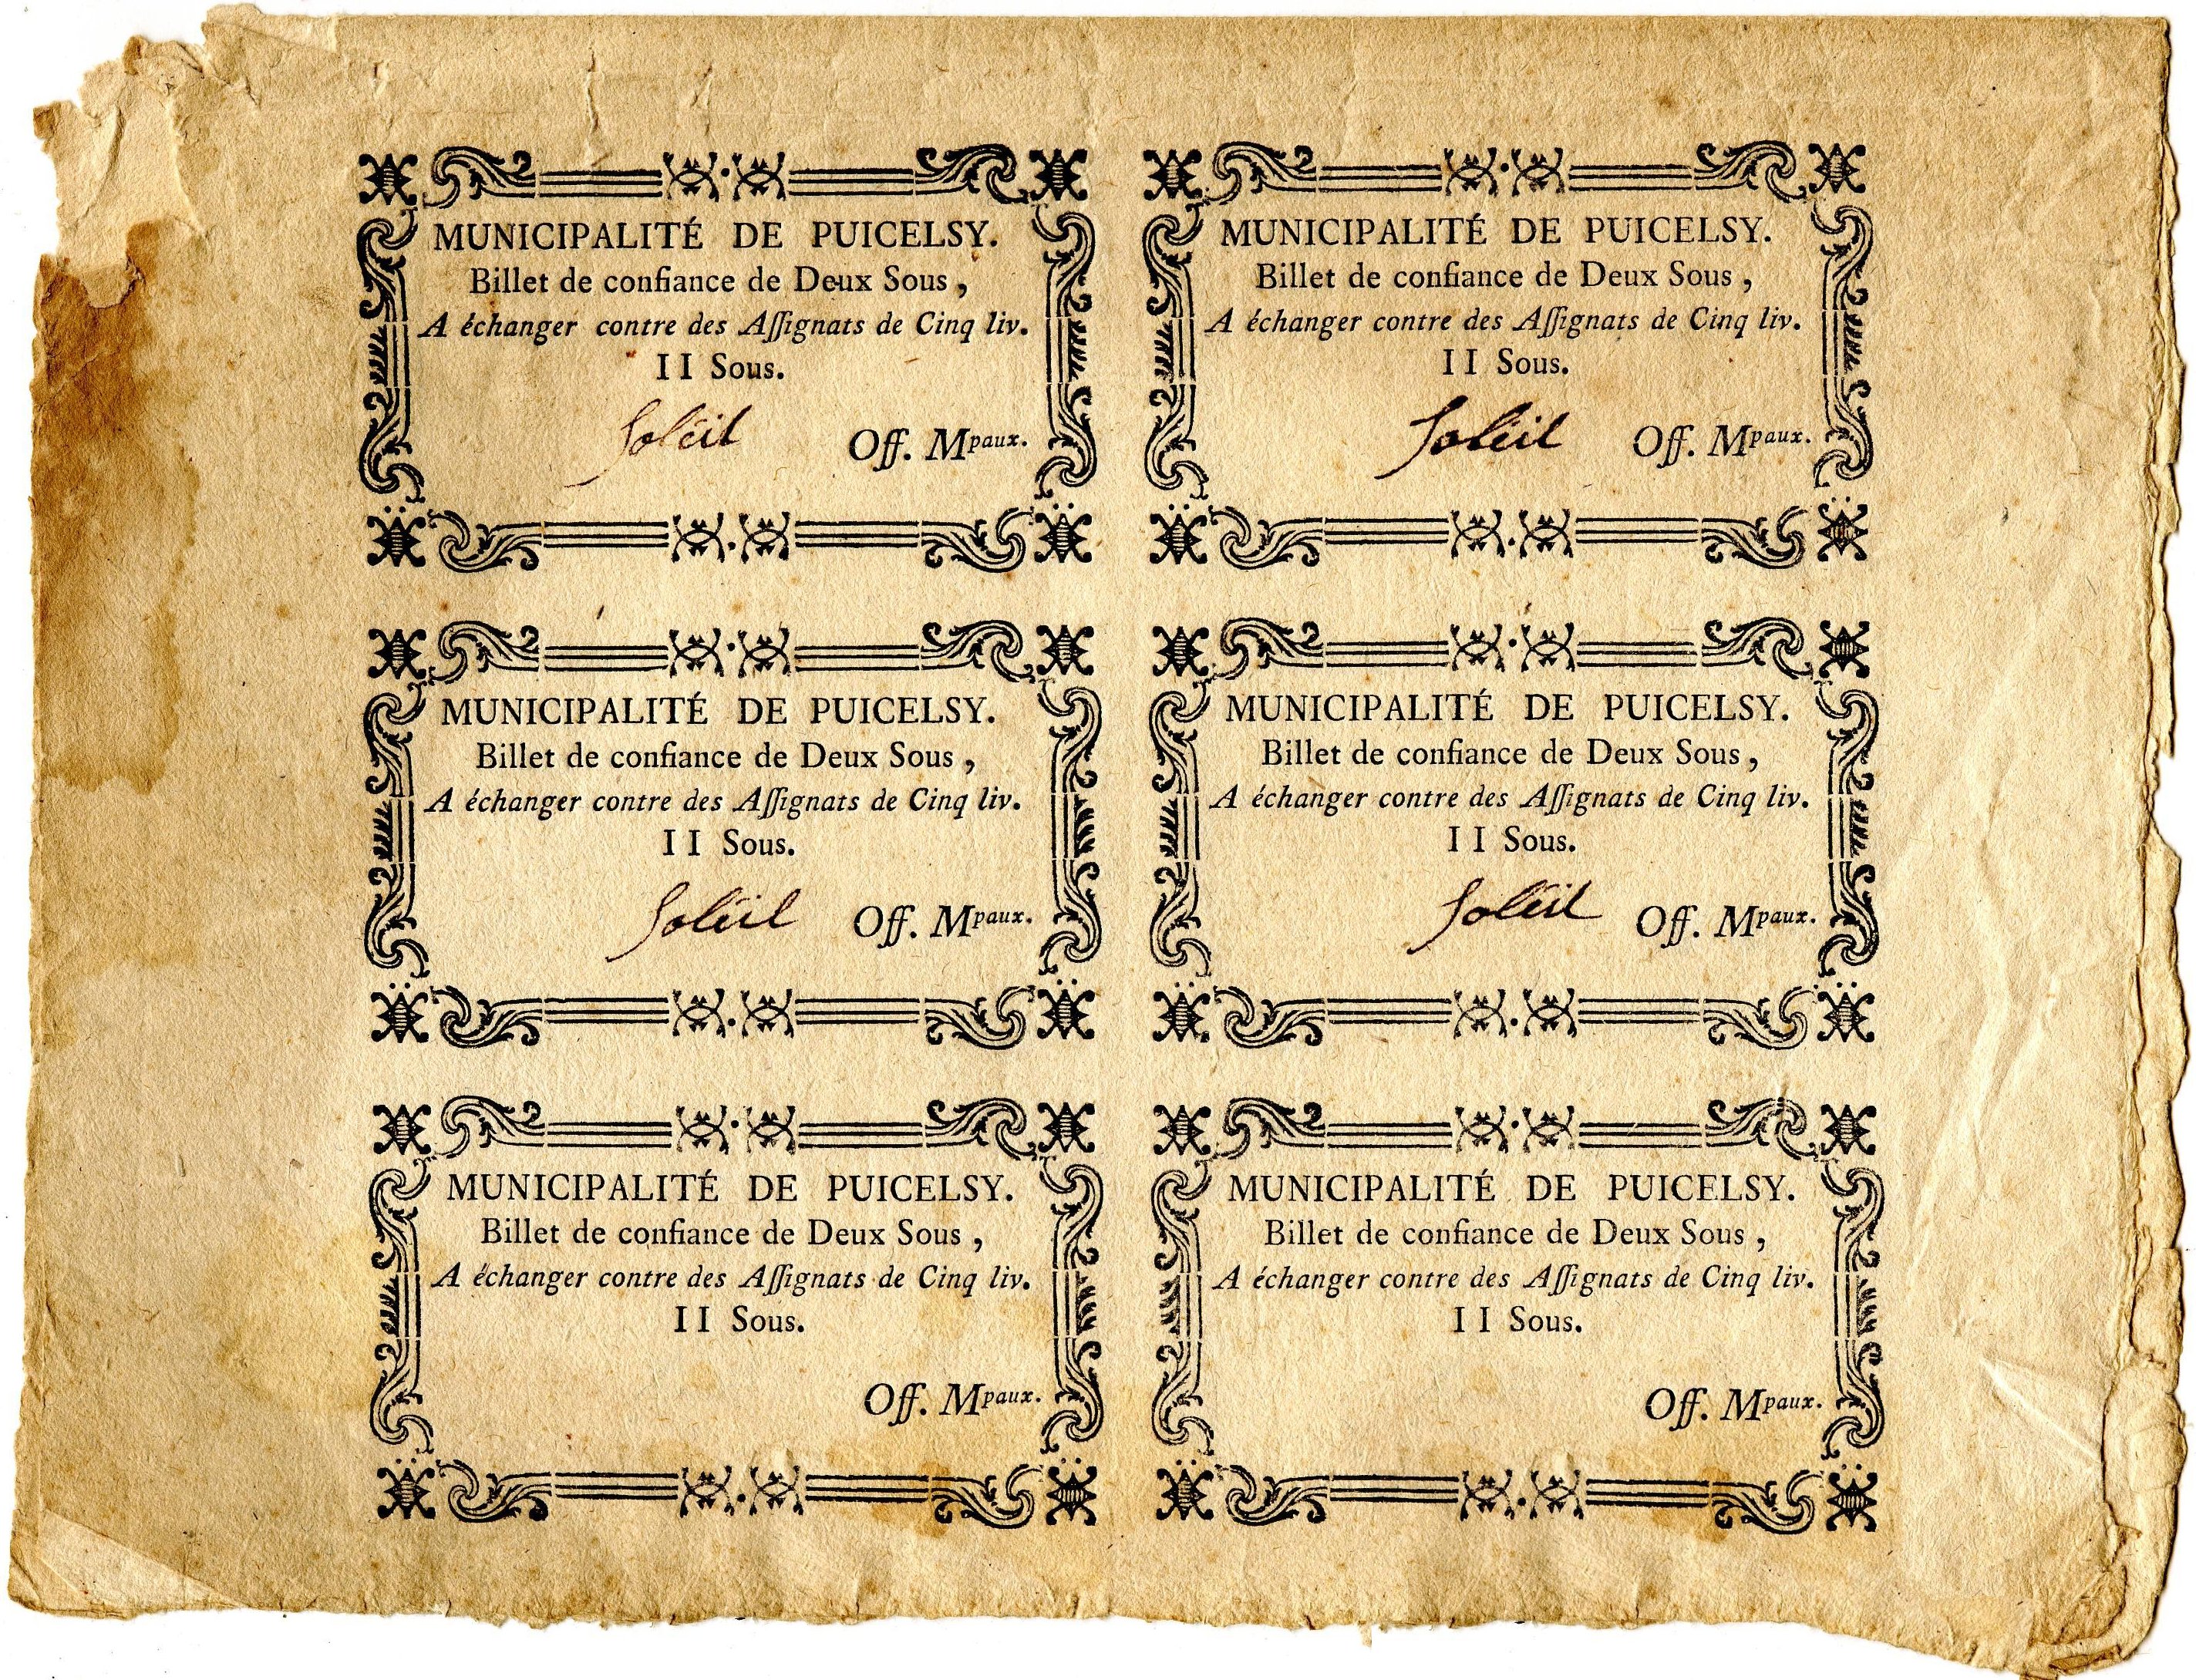 MUNICIPALITÉ DE PUICELSY.
Billet de confiance de Deux Sous,
A échanger contre des Aſſignats de Cinq liv.
II Sous.
Soléil Off. Mpaux.
MUNICIPALITÉ DE PUICELSY.
Billet de confiance de Deux Sous,
A échanger contre des Aſſignats de Cinq liv.
II Sous.
Soléil Off. Mpaux.
MUNICIPALITÉ DE PUICELSY.
Billet de confiance de Deux Sous,
A échanger contre des Aſſignats de Cinq liv.
II Sous.
Soléil Off. Mpaux.
MUNICIPALITÉ DE PUICELSY.
Billet de confiance de Deux Sous,
A échanger contre des Aſſignats de Cinq liv.
II Sous.
Soléil Off. Mpaux.
MUNICIPALITÉ DE PUICELSY.
Billet de confiance de Deux Sous,
A échanger contre des Aſſignats de Cinq liv.
II Sous.
Off. Mpaux.
MUNICIPALITÉ DE PUICELSY.
Billet de confiance de Deux Sous,
A échanger contre des Aſſignats de Cinq liv.
II Sous.
Off. Mpaux.